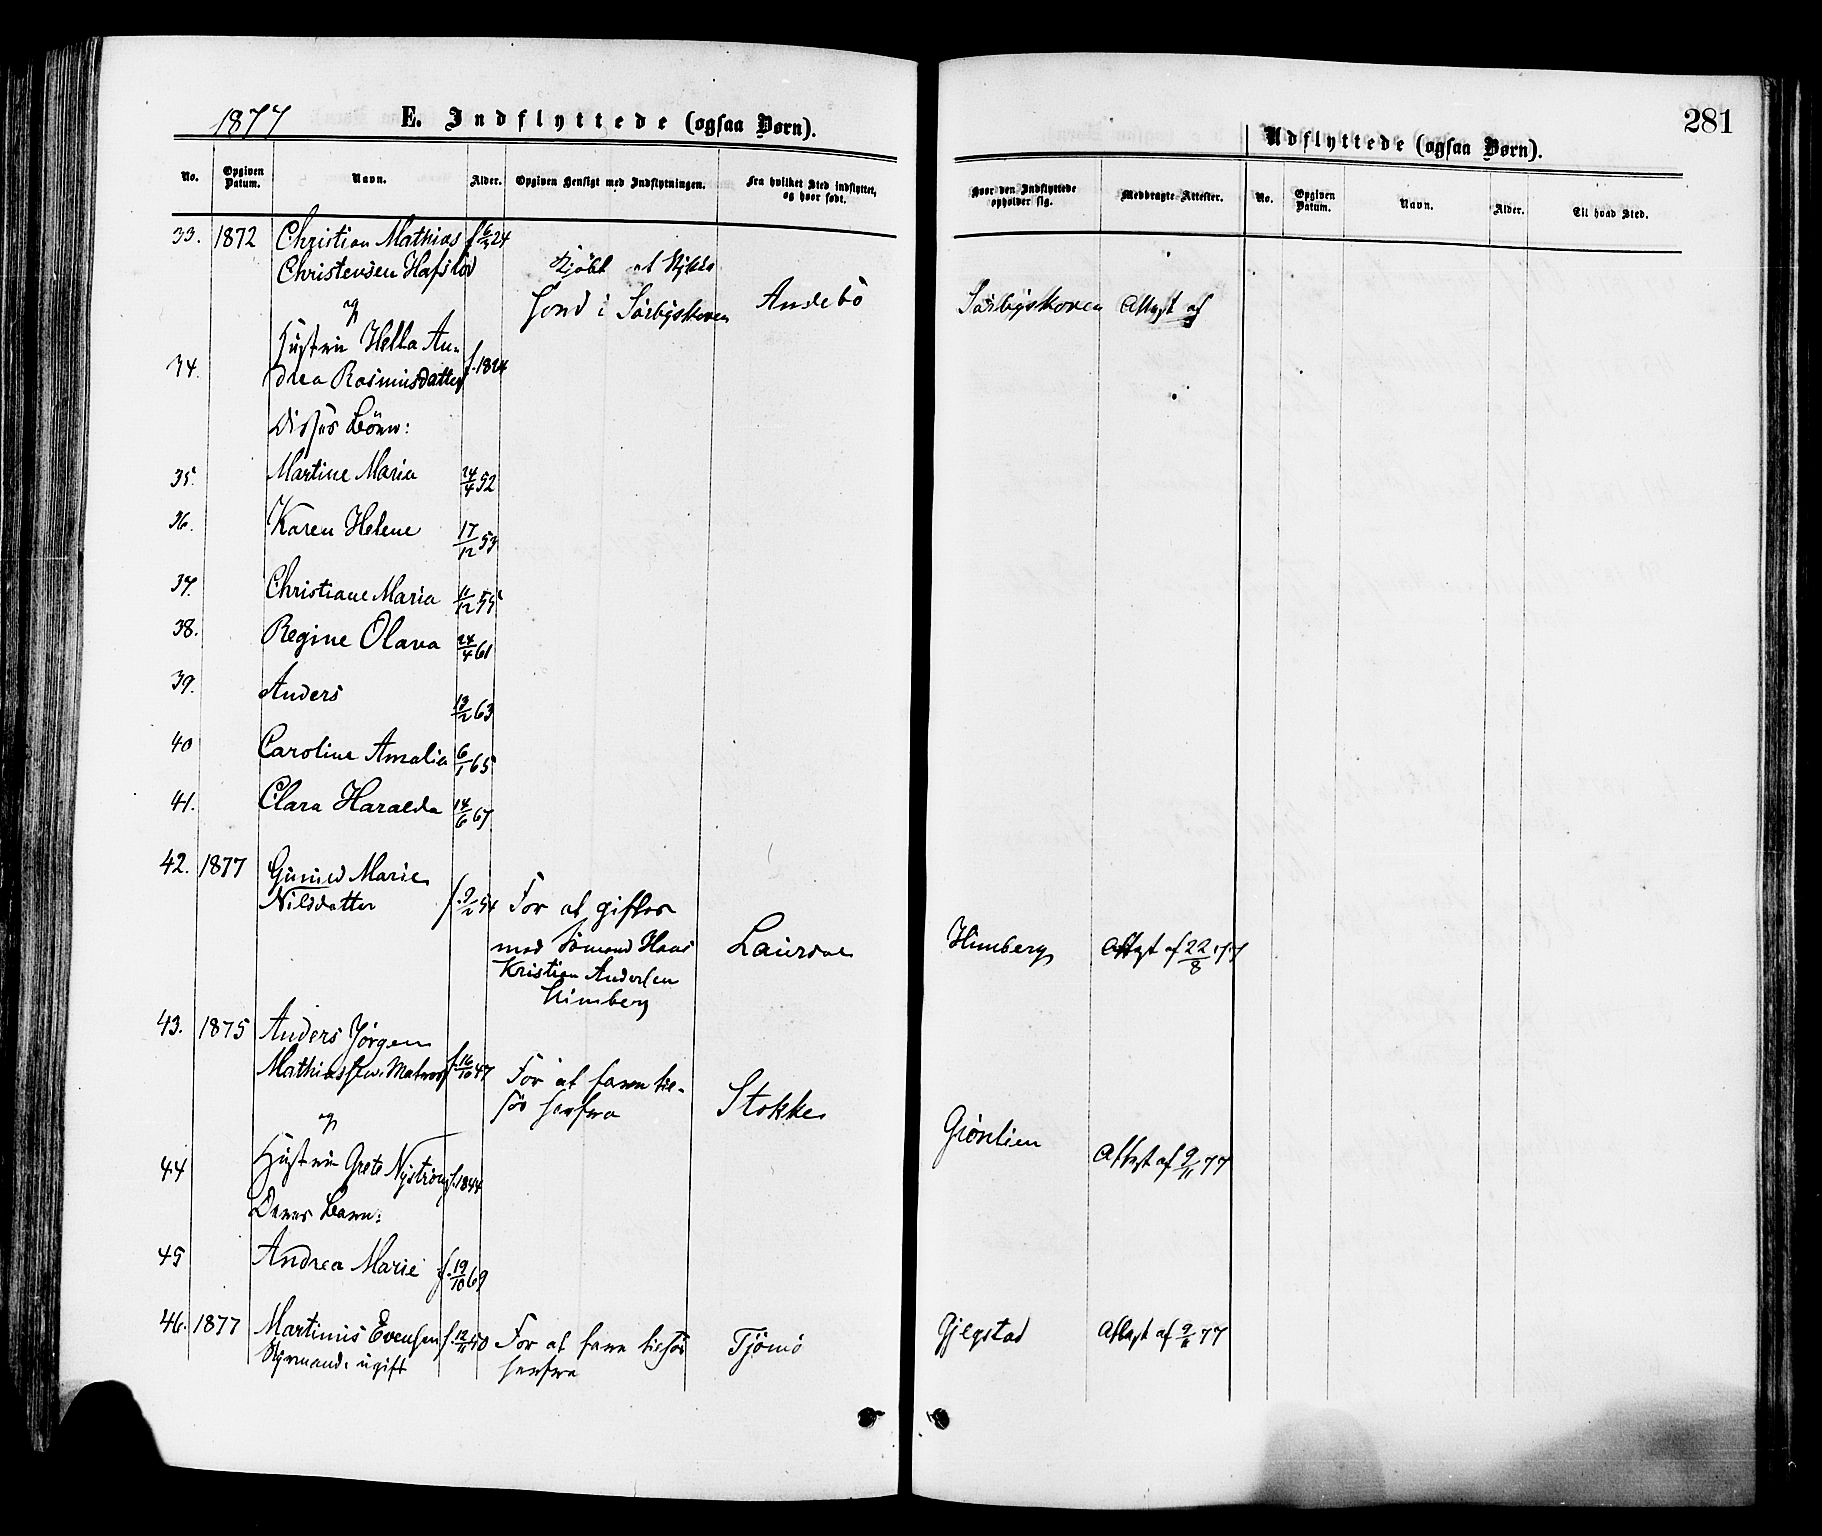 1877
E. Indflyttede (ogsaa Børn).
No.
Opgiven Datum.
Navn.
Alder.
Opgiven Hensigt med Indflytningen.
Fra hvilket Sted indflyttet, og hvor født.
33. 1872 Christian Mathias f 24
Christensen Hafslöd
Kjöbt et Stykke
Jord i Sörbyskoven
Andebö
og
34. Hustru Hella An-
drea Rasmusdatter f. 1824
Disses Börn:
35. Martine Maria 24/4 52
36. Karen Helene 17/12 53
37. Christiane Maria 11/12 55
38. Regine Olava 24/4 61
39. Anders 13/2 63
40 Caroline Amalia 6/1 65
41. Clara Haralda 14/6 67
42. 1877 Gunild Marie
Nilsdatter f. 9/2 54
For at giftes
med Sömand Hans
Kristian Andersen
Himberg
Laurdal
43. 1875 Anders Jörgen
Mathiassen. Matros f. 16/10 47
For at fare til-
sös herfra
Stokke
og
44 Hustru Grete Nyström f. 1844
Deres Barn:
45 Andrea Marie f. 19/10 69
46. 1877 Martinus Evensen f. 12/11 50
Styrmand. ugift
For at fare tilsös
herfra
Tjömö
281
Udflyttede (ogsaa Børn).
Hvor den Indflyttede opholder sig.
Medbragte Attester.
No.
Opgiven Datum.
Navn.
Alder.
Til hvad Sted.
Sörbyskoven Attest af
Himberg Attest af 22/8 77
Grönlien
Attest af 9/11 77
Gjegstad Attest af 9/11 77